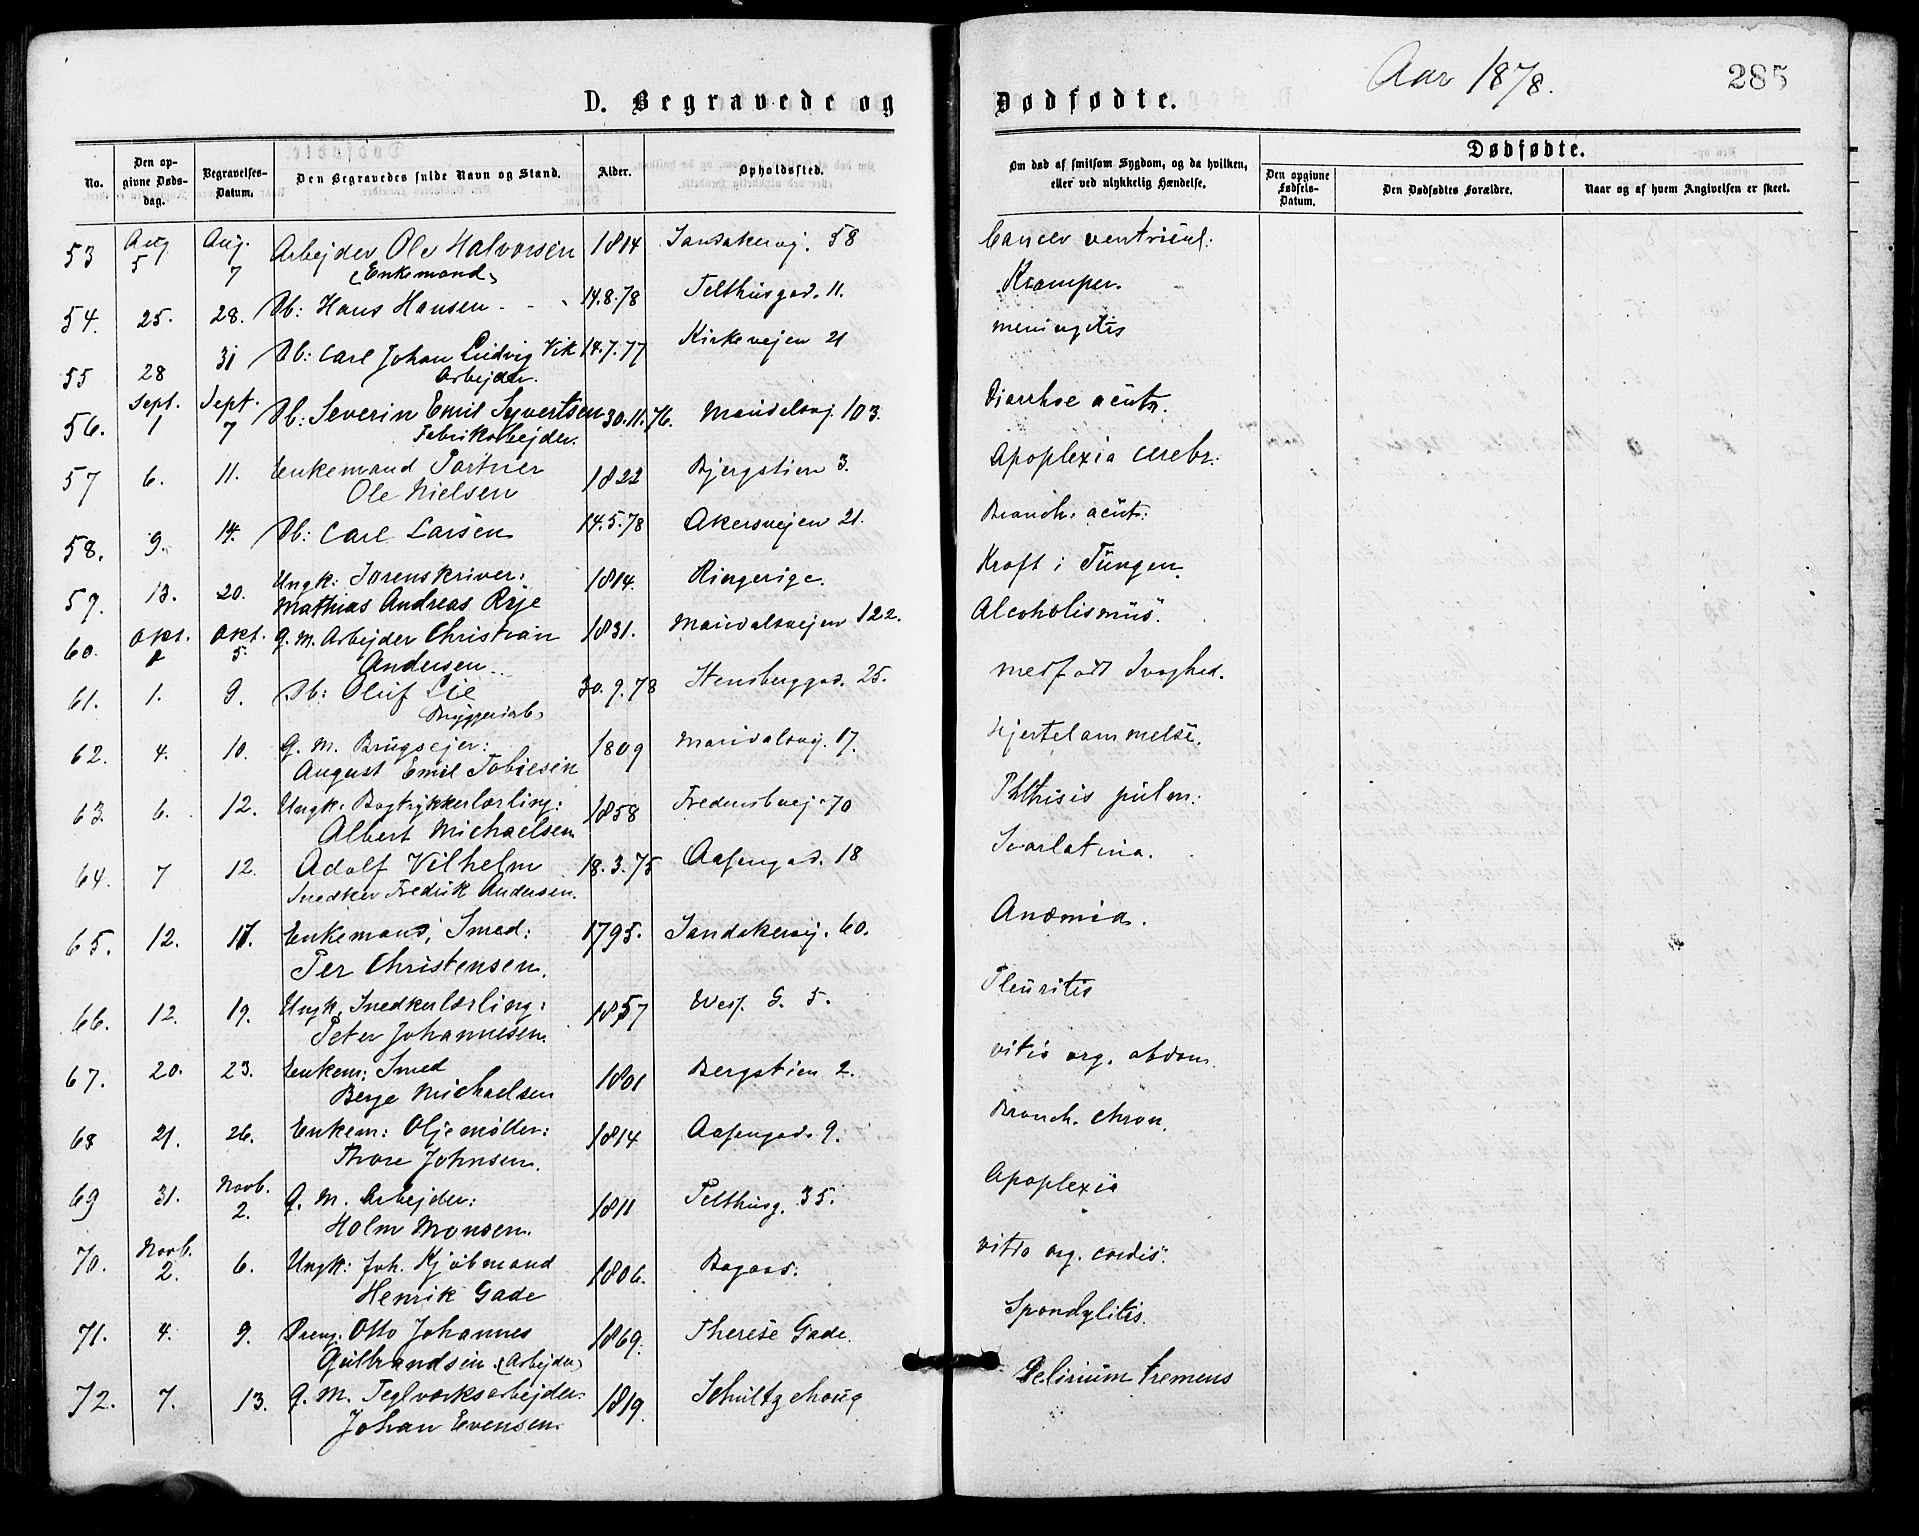 Aar 1878.
285
D. Begravede og Dødfødte.
No.
Den opgivne Dødsdag.
Begravelses-Datum.
Den Begravedes fulde Navn og Stand.
Alder.
Opholdssted.
Om død af smitsom Sygdom, og da hvilken, eller ved ulykkelig Hændelse.
Dødfødte.
Den opgivne Fødsels-Datum.
Den Dødfødtes Forældre.
Naar og af hvem Angivelsen er skeet.
53 Aug 5 Aug. 7 Arbejder Ole Halvorsen 1814 Sandakervej. 58 Cancer ventricul:
(Enkemand)
54. 25. 28. Db: Hans Hansen 14.8.78 Telthusgad. 11. Kramper.
55 28 31 Db: Carl Johan Ludvig Vik 14.7.77 Kirkevejen 21 meningitis
Arbejder.
56. Sept. 1 Sept. 7 Db: Severin Emil Syvertsen 30.11.76. Maridalsvej 103. Diarrhoe acut.
Fabrikarbejder.
57 6. 11. Enkemand Portner 1822 Bjergstien 3. Apoplexia cerebr:
Ole Nielsen
58. 9. 14. Db: Carl Larsen 14.5.78 Akersvejen 21. Bronch. acut:
59. 13. 20. Ungk: Sorenskriver: 1814. Ringerige. Kræft i Tungen.
Mathias Andreas Rye
60. Okt. 1 Okt. 5. G. M. Arbejder Christian 1831. Maridalsvejen 122. Alcoholismus.
Andersen
61. 1. 9. Db: Oluf Lie 30.9.78 Stensberggad. 25. medfødt Svaghed.
(Bryggeriarb)
62. 4. 10. G. M. Brugsejer: 1809 Maridalsvej. 17. Hjertelammelse.
August Emil Tobiesen
63. 6. 12. Ungk: Bogtrykkerlærling: 1858 Fredensbvej 70 Phthisis pulm:
Albert Michaelsen
64. 7 12. Adolf Vilhelm 18.3.75 Aasengad. 18 Scarlatina.
Snedker Fredrik Andersen.
65. 12. 17. Enkemand, Smed: 1795. Sandakervej. 60. Anæmia.
Per Christensen.
66. 12. 19. Ungk, Snedkerlærling: 1857 Wesf. G. 5. Pleuritis
Peter Johannesen.
67. 20. 23. Enkem: Smed 1801 Bergstien 2. vitio org. abdom.
Berge Michaelsen
68 21. 26. Enkem: Oljemøller: 1814 Aasengad. 9. Bronch. chron.
Thore Johnsen.
69 31. Novb. 2. G. M. Arbejder: 1811 Telthusg. 35. Apoplexia
Holm Monsen.
70. Novb. 2. 6. Ungk: foh. Kjøbmand 1806. Bagaas. vitio org. cordis.
Henrik Gade
71. 4. 9. Dreng: Otto Johannes 1869. Therese Gade. Spondylitis.
Gulbrandsen (Arbejder)
72. 7. 13. G. M. Teglværksarbejder: 1819. Schultzehaug Delirium tremens
Johan Evensen.